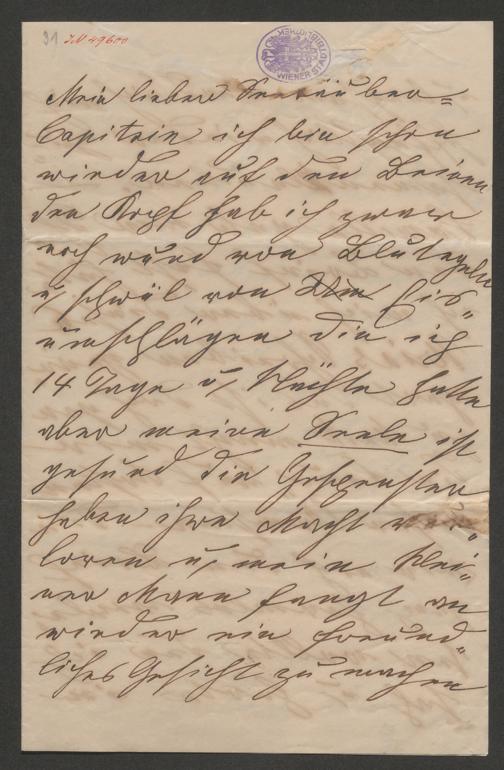 31 IN 49600
WIENER STADTBIBLIOTHEK
Mein lieber Seeräuber=
Capitain ich bin schon
wieder auf den Beinen
den Kopf hab ich zwar
noch wund von Blutegeln
u, schwül von Eis"
umschlägen die ich
14 Tage u, Nächte hatte
aber meine Seele ist
gesund die Gespenster
haben ihre Macht ver"
loren u, mein klei"
ner Mann fangt an
wieder ein freund"
liches Gesicht zu machen